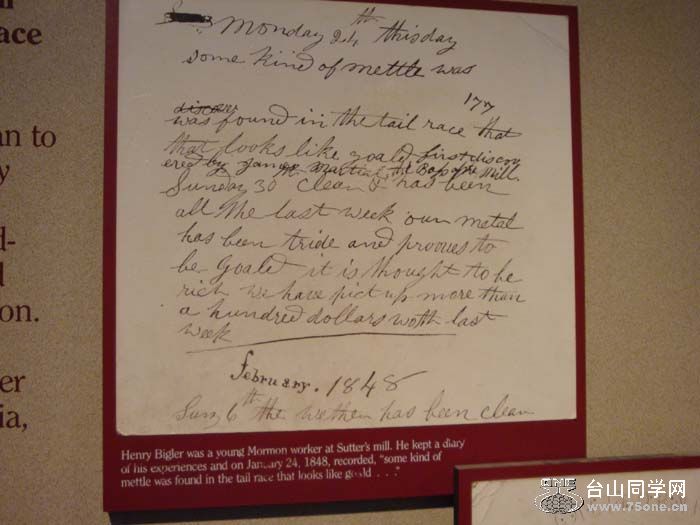 ace
an to
y
d-
d
on.
er
ia,
Monday 24th this day
some kind of mettle was
177
was found in the tail race that
that looks like goald first discov
ered by James Martial, the Boss of the Mill.
Sunday 30 clear & has been
all the last week our metal
has been tride and prooves to
be goald it is thought to be
rich we have pict up more than
a hundred dollars woth last
week
february. 1848
Sun, 6th the wether has been clear
Henry Bigler was a young Mormon worker at Sutter's mill. He kept a diary
of his experiences and on January 24, 1848, recorded, "some kind of
mettle was found in the tail race that looks like goald . . ."
台山同学网
www.75one.cn